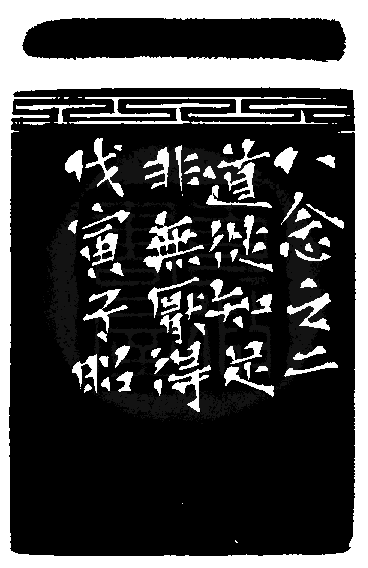 八念之二
道從知足
非無厭得
戊寅子昭